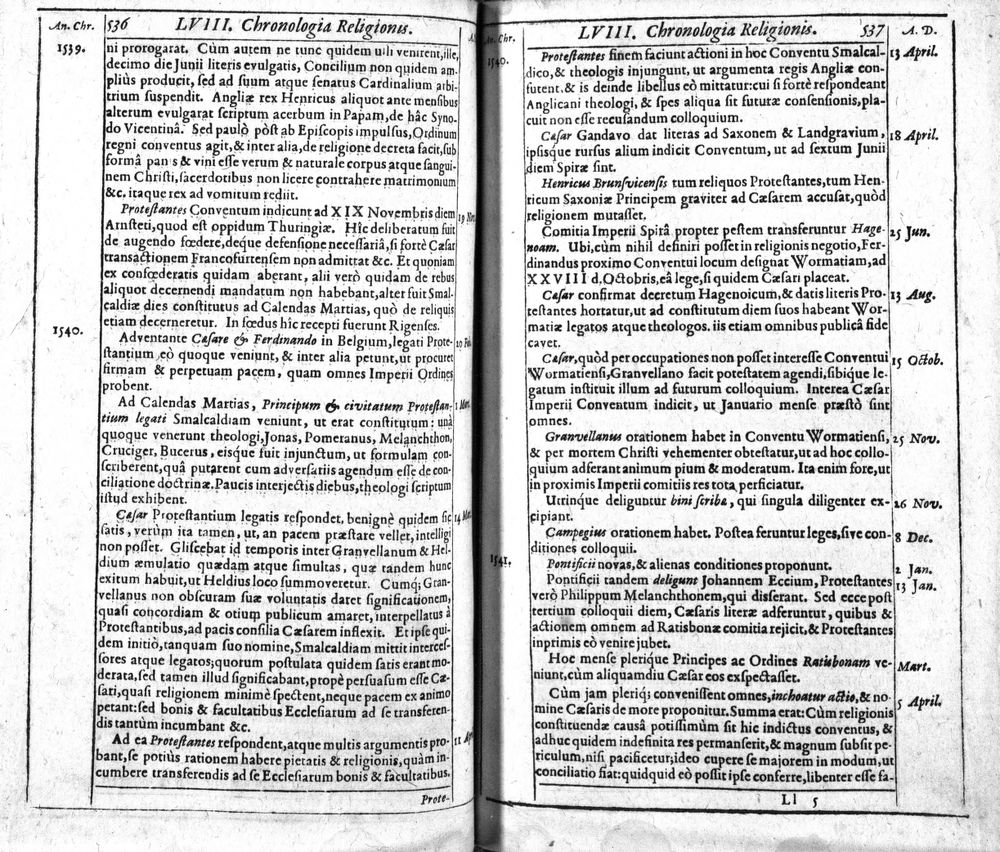 An. Chr. 536 LVIII. Chronologia Religionis.
1539. ni prorogarat. Cùm autem ne tunc quidem ulli venirent, ille,
decimo die Junii literis evulgatis, Concilium non quidem am-
pliùs producit, sed ad suum atque senatus Cardinalium arbi-
trium suspendit. Angliæ rex Henricus aliquot ante mensibus
alterum evulgarat scriptum acerbum in Papam, de hâc Syno-
do Vicentinâ. Sed paulò pòst ab Episcopis impulsus, Ordinum
regni conventus agit, & inter alia, de religione decreta facit, sub
formâ panis & vini esse verum & naturale corpus atque sangui-
nem Christi, sacerdotibus non licere contrahere matrimonium
&c. itaque rex ad vomitum rediit.
Protestantes Conventum indicunt ad XIX Novembris diem 19 No
Arnsteti, quod est oppidum Thuringiæ. Hîc deliberatum fuit
de augendo fœdere, deque defensione necessariâ, si fortè Cæsar
transactionem Francofurtensem non admittat &c. Et quoniam
ex confœderatis quidam aberant, alii verò quidam de rebus
aliquot decernendi mandatum non habebant, alter fuit Smal-
caldiæ dies constitutus ad Calendas Martias, quò de reliquis
1540. etiam decerneretur. In fœdus hîc recepti fuerunt Rigenses.
Adventante Cæsare & Ferdinando in Belgium, legati Prote-
stantium eò quoque veniunt, & inter alia petunt, ut procuret
firmam & perpetuam pacem, quam omnes Imperii Ordines
probent.
Ad Calendas Martias, Principum & civitatum Protestan- 1 Mar.
tium legati Smalcaldiam veniunt, ut erat constitutum: unà
quoque venerunt theologi, Jonas, Pomeranus, Melanchthon,
Cruciger, Bucerus, eisque fuit injunctum, ut formulam con-
scriberent, quâ putarent cum adversariis agendum esse de con-
ciliatione doctrinæ. Paucis interjectis diebus, theologi scriptum
istud exhibent.
Cæsar Protestantium legatis respondet, benignè quidem sic 14
satis, verùm ita tamen, ut, an pacem præstare vellet, intelligi
non posset. Gliscebat id temporis inter Granvellanum & Hel-
dium æmulatio quædam atque simultas, quæ tandem hunc
exitum habuit, ut Heldius loco summoveretur. Cumq; Gran-
vellanus non obscuram suæ voluntatis daret significationem,
quasi concordiam & otium publicum amaret, interpellatus à
Protestantibus, ad pacis consilia Cæsarem inflexit. Et ipse qui-
dem initiò, tanquam suo nomine, Smalcaldiam mittit interces-
sores atque legatos; quorum postulata quidem satis erant mo-
derata, sed tamen illud significabant, propè persuasum esse Cæ-
sari, quasi religionem minimè spectent, neque pacem ex animo
petant: sed bonis & facultatibus Ecclesiarum ad se transferen-
dis tantùm incumbant &c.
Ad ea Protestantes respondent, atque multis argumentis pro- 11 Ap
bant, se potiùs rationem habere pietatis & religionis, quàm in-
cumbere transferendis ad se Ecclesiarum bonis & facultatibus.
Prote-
Chr. LVIII. Chronologia Religionis. 537 A. D.
1540. Protestantes finem faciunt actioni in hoc Conventu Smalcal- 13 April.
dico, & theologis injungunt, ut argumenta regis Angliæ con-
futent, & is deinde libellus eò mittatur: cui si fortè respondeant
Anglicani theologi, & spes aliqua sit futuræ consensionis, pla-
cuit non esse recusandum colloquium.
Cæsar Gandavo dat literas ad Saxonem & Landgravium, 18 April.
ipsisque rursus alium indicit Conventum, ut ad sextum Junii
diem Spiræ sint.
Henricus Brunsvicensis tum reliquos Protestantes, tum Hen-
ricum Saxoniæ Principem graviter ad Cæsarem accusat, quòd
religionem mutasset.
Comitia Imperii Spirâ propter pestem transferuntur Hage- 25 Jun.
noam. Ubi, cùm nihil definiri posset in religionis negotio, Fer-
dinandus proximo Conventui locum designat Wormatiam, ad
XXVIII d. Octobris, eâ lege, si quidem Cæsari placeat.
Cæsar confirmat decretum Hagenoicum, & datis literis Pro- 13 Aug.
testantes hortatur, ut ad constitutum diem suos habeant Wor-
matiæ legatos atque theologos. iis etiam omnibus publicâ fide
cavet.
Cæsar, quòd per occupationes non posset interesse Conventui 15 Octob.
Wormatiensi, Granvellano facit potestatem agendi, sibique le-
gatum instituit illum ad futurum colloquium. Interea Cæsar
Imperii Conventum indicit, ut Januario mense præstò sint
omnes.
Granvellanus orationem habet in Conventu Wormatiensi, 25 Nov.
& per mortem Christi vehementer obtestatur, ut ad hoc collo-
quium adferant animum pium & moderatum. Ita enim fore, ut
in proximis Imperii comitiis res tota perficiatur.
Utrinque deliguntur bini scribæ, qui singula diligenter ex- 26 Nov.
cipiant.
Campegius orationem habet. Postea feruntur leges, sive con- 8 Dec.
ditiones colloquii.
1541. Pontificii novas, & alienas conditiones proponunt. 2 Jan.
Pontificii tandem deligunt Johannem Eccium, Protestantes 13 Jan.
verò Philippum Melanchthonem, qui disserant. Sed ecce post
tertium colloquii diem, Cæsaris literæ adferuntur, quibus &
actionem omnem ad Ratisbonæ comitia rejicit, & Protestantes
inprimis eò venire jubet.
Hoc mense plerique Principes ac Ordines Ratisbonam ve- Mart.
niunt, cùm aliquamdiu Cæsar eos exspectasset.
Cùm jam pleriq; convenissent omnes, inchoatur actio, & no- 5 April.
mine Cæsaris de more proponitur. Summa erat: Cùm religionis
constituendæ causâ potissimùm sit hic indictus conventus, &
adhuc quidem indefinita res permanserit, & magnum subsit pe-
riculum, nisi pacificetur; ideo cupere se majorem in modum, ut
conciliatio fiat: quidquid eò possit ipse conferre, libenter esse fa-
Ll 5